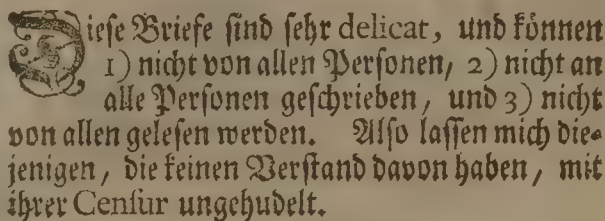 Diese Briefe sind sehr delicat, und können
1) nicht von allen Personen, 2) nicht an
alle Personen geschrieben, und 3) nicht
von allen gelesen werden. Also lassen mich die-
jenigen, die keinen Verstand davon haben, mit
ihrer Censur ungehudelt.